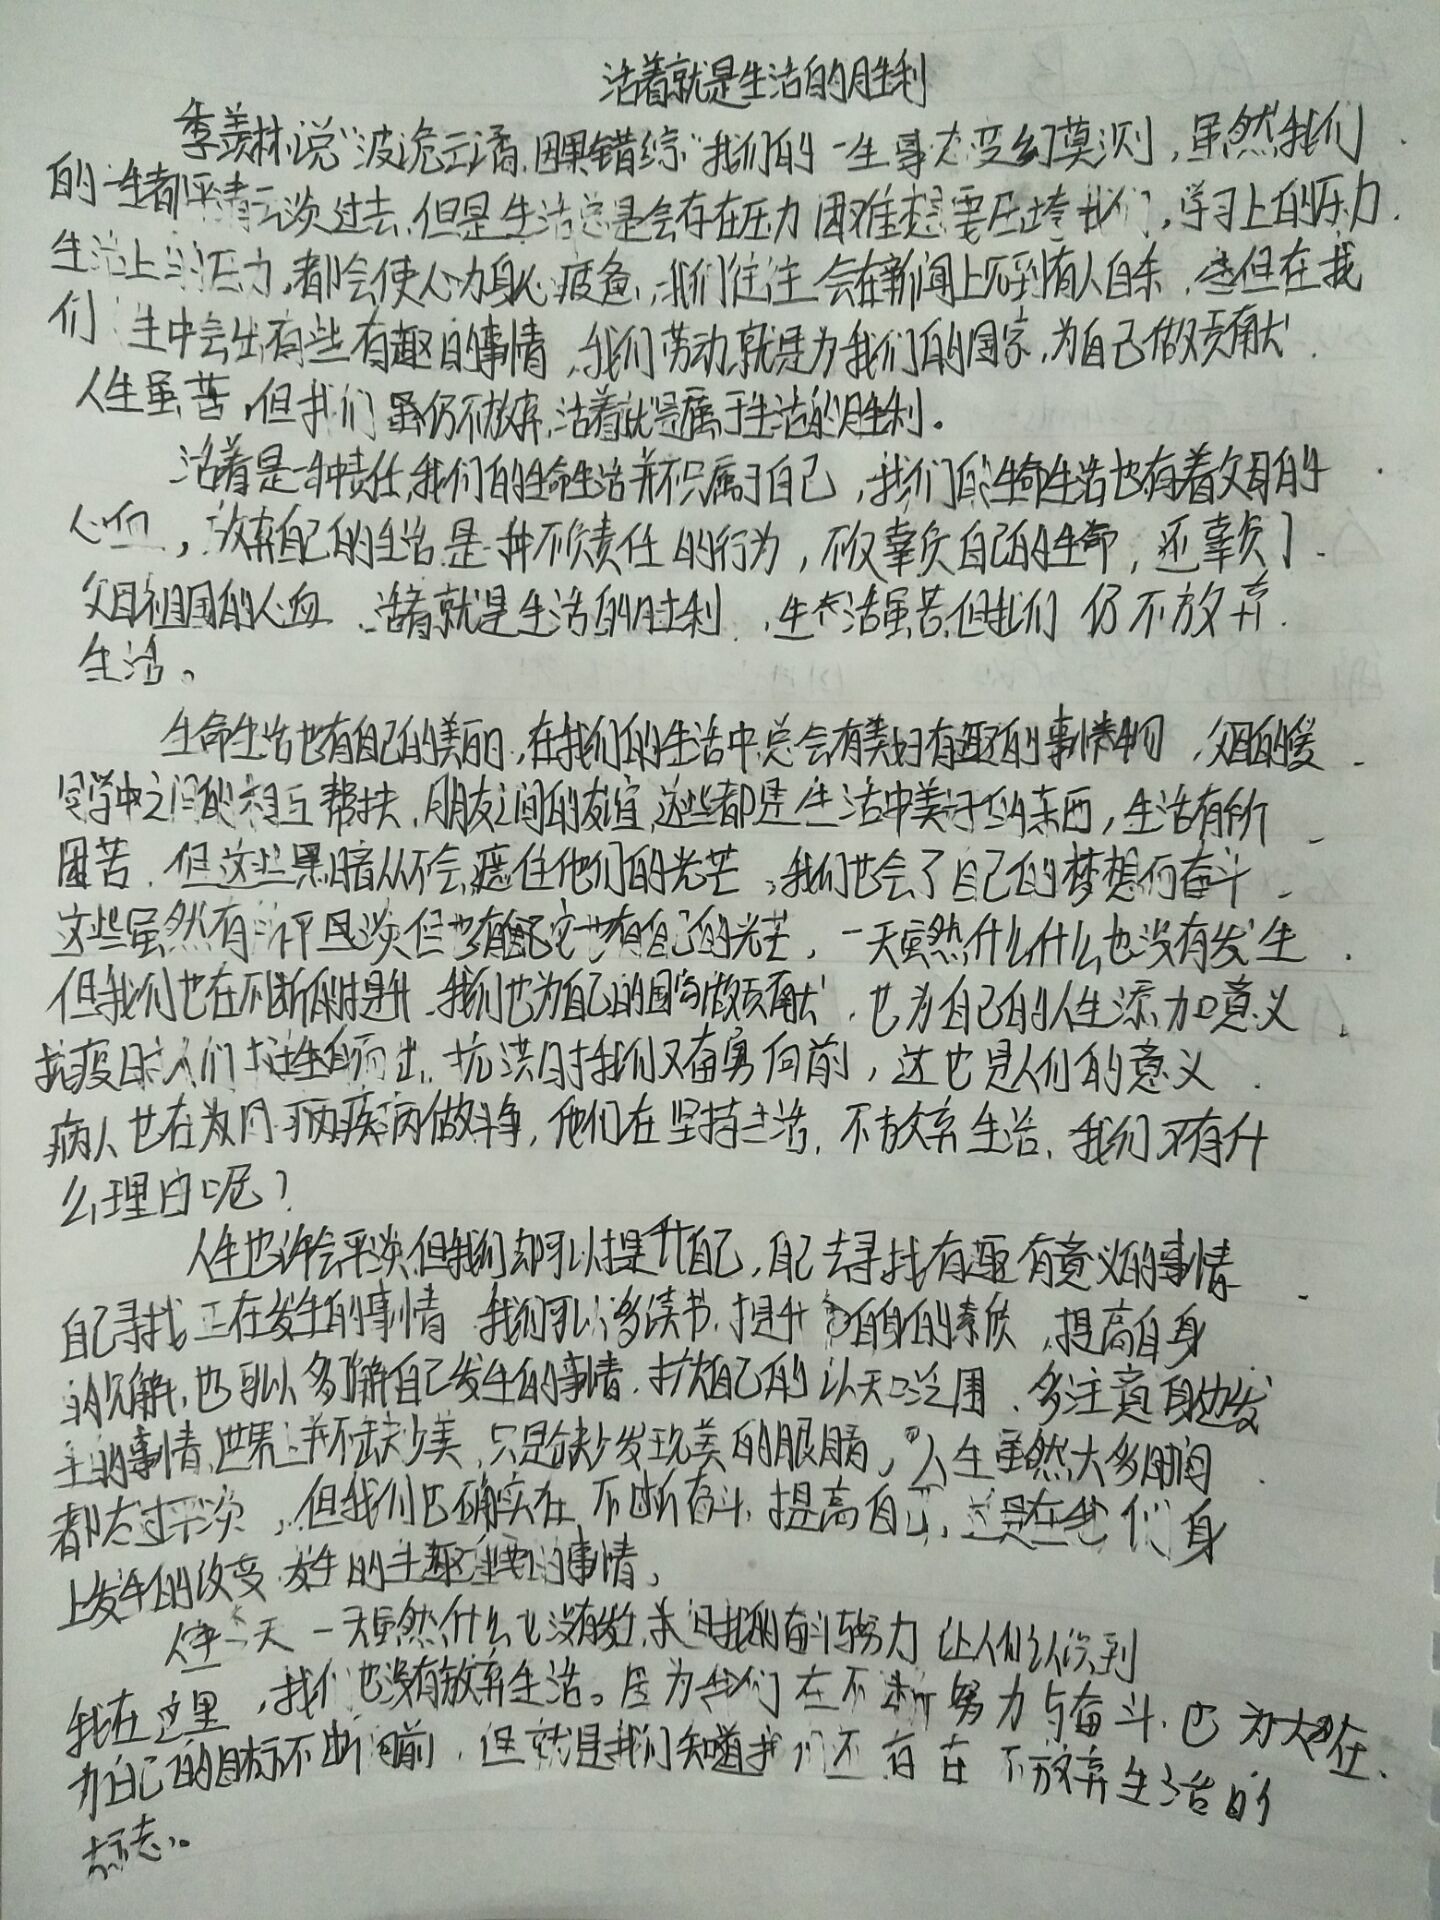 活着就是生活的胜利
季羡林说"波诡云谲,因果错综"我们的一生事态变幻莫测,虽然我们
的一生都平清云淡过去,但是生活总是会存在压力困难想要压垮我们,学习上的压力
生活上的压力,都会使人心力身心疲惫,我们往往会在新闻上见到有人自杀,但在我
们一生中会出有些有趣的事情,我们劳动就是为我们的国家,为自己做贡献
人生虽苦,但我们虽仍不放弃,活着就是属于生活的胜利。
活着是一种责任,我们的生命生活并不只属于自己,我们的生命生活也有着父母的
心血,放弃自己的生活是一种不负责任的行为,不仅辜负自己的生命,还辜负了
父母祖国的心血,活着就是生活的胜利,生活虽苦,但我们仍不放弃
生活。
生命生活也有自己的美丽,在我们的生活中总会有美好有趣的事情事物,父母的爱
同学中之间的相互帮扶,朋友之间的友谊,这些都是生活中美好的东西,生活有所
困苦,但这些黑暗从不会遮住他们的光芒,我们也会了自己的梦想而奋斗
这些虽然有些平淡但也有自己的光芒,一天虽然什么什么也没有发生
但我们也在不断的提升,我们也为自己的国家做贡献,也为自己的人生添加意义
抗疫时人们挺身而出,抗洪时我们又奋勇向前,这也是人们的意义
病人也在为疾病做斗争,他们在坚持生活,不放弃生活,我们又有什
么理由呢?
人生也许会平淡,但我们却可以提升自己,自己去寻找有趣有意义的事情
自己寻找正在发生的事情,我们可以多读书,提升自身的素质,提高自身
的见解,也可以多了解自己发生的事情,扩大自己的认知范围,多注意身边发
生的事情,世界上并不缺少美,只是缺少发现美的眼睛,人生虽然大多期间
都在过平淡,但我们也确实在不断奋斗,提高自己,这是在我们身
上发生的改变,发生的主题重要的事情,
一天虽然什么也没有发生,我的奋斗努力让人们认识到
我在这里,我们也没有放弃生活。因为我们在不断努力与奋斗,也为
为自己的目标不断向前,这就是我们知道我们还存在不放弃生活的
标志。